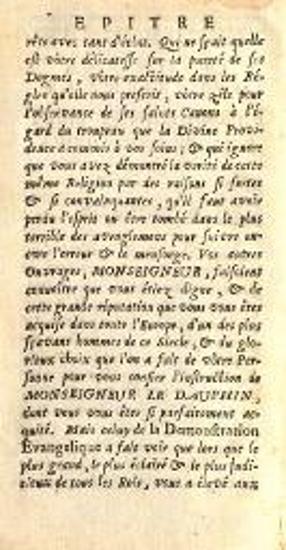 EPITRE
rête avec tant d'éclat. Qui ne sçait quelle
est vôtre délicatesse sur la pureté de ses
Dogmes, vôtre exactitude dans les Ré-
gles qu'elle nous prescrit, vôtre zèle pour
l'observance de ses saints Canons à l'é-
gard du troupeau que la Divine Provi-
dence a commis à vos soins; & qui ignore
que vous avez démontré la verité de cette
même Religion par des raisons si fortes
& si convainquantes, qu'il faut avoir
perdu l'esprit ou être tombé dans le plus
terrible des aveuglemens pour suivre en-
core l'erreur & le mensonge. Vos autres
Ouvrages, MONSEIGNEUR, faisoient
connoître que vous étiez digne, & de
cette grande réputation que vous vous êtes
acquise dans toute l'Europe, d'un des plus
sçavans hommes de ce Siècle, & du glo-
rieux choix que l'on a fait de vôtre Per-
sonne pour vous confier l'instruction de
MONSEIGNEUR LE DAUPHIN,
dont vous vous êtes si parfaitement ac-
quité. Mais celuy de la Demonstration
Évangelique a fait voir que lors que le
plus grand, le plus éclairé & le plus judi-
cieux de tous les Rois, vous a élevé aux